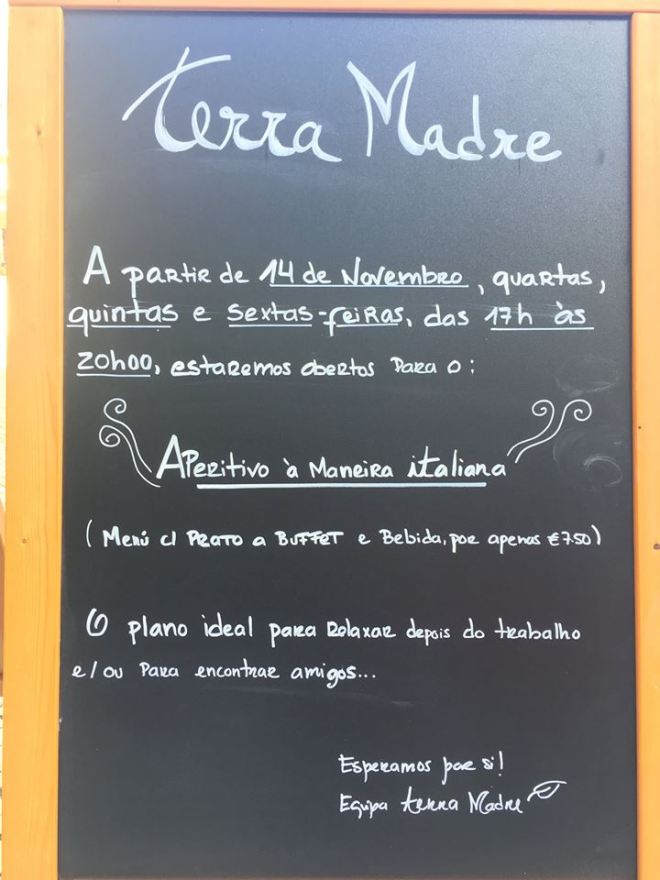 Terra Madre
A partir de 14 de Novembro, quartas,
quintas e sextas-feiras, das 17h às
20h00, estaremos abertos para o:
Aperitivo à Maneira italiana
(Menú c/ Prato a BUFFET e Bebida, por apenas €7.50)
O plano ideal para Relaxar depois do trabalho
e/ou Para encontrar amigos...
Esperamos por si!
Equipa terra Madre